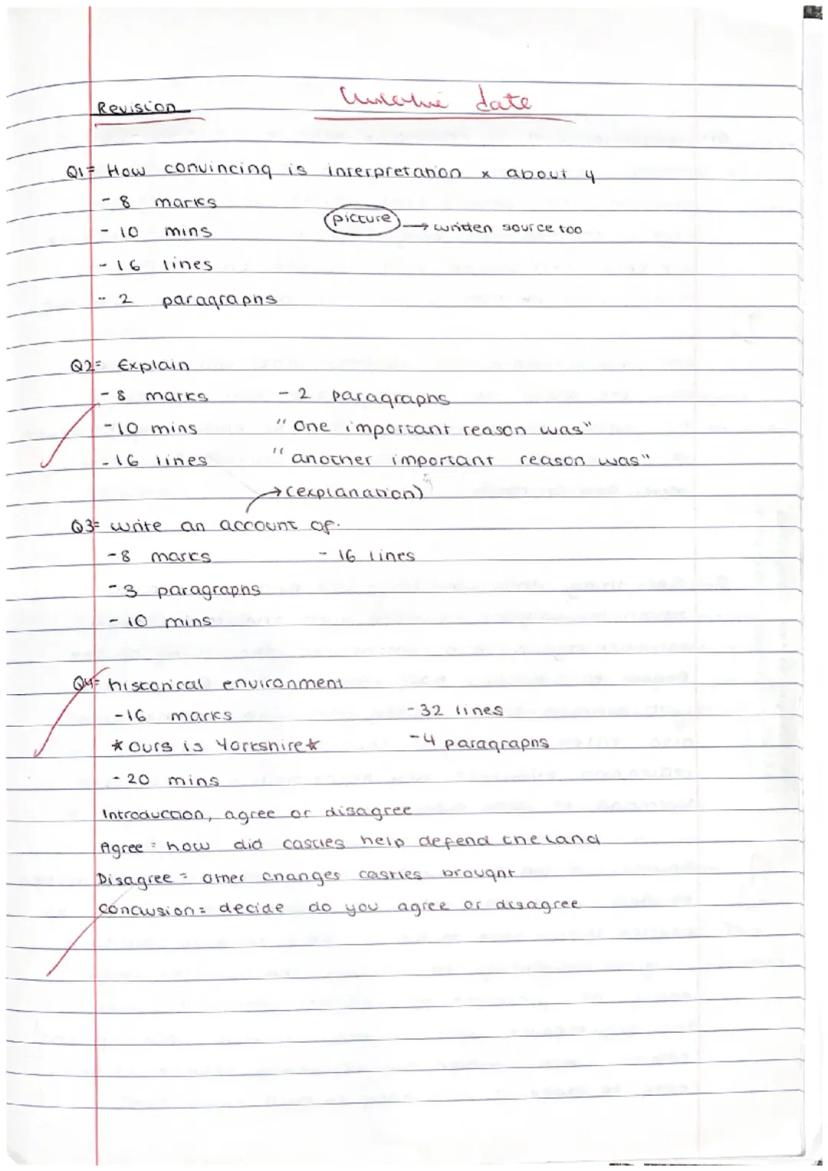 Revision date
Q1= How convincing is interpretation x about y
- 8 marks
- 10 mins picture → written source too
- 16 lines
- 2 paragraphs
Q2= Explain
- 8 marks - 2 paragraphs
- 10 mins "One important reason was"
- 16 lines "another important reason was"
→ (explanation)
Q3= write an account of.
- 8 marks - 16 lines
- 3 paragraphs
- 10 mins
Q4= historical environment
- 16 marks - 32 lines
*ours is Yorkshire* - 4 paragraphs
- 20 mins
Introduction, agree or disagree
Agree = how did castles help defend the land
Disagree = other changes castles brought
conclusion = decide do you agree or disagree